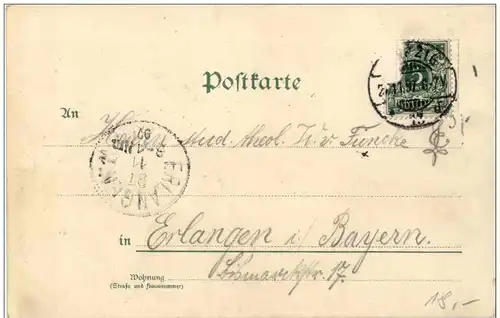 Postkarte
An Herrn stud. theol. K. v. Funcke
in Erlangen i/ Bayern.
Wohnung Bismarckstr. 17.
(Straße und Hausnummer)
ERLANGEN
11
97
18,-